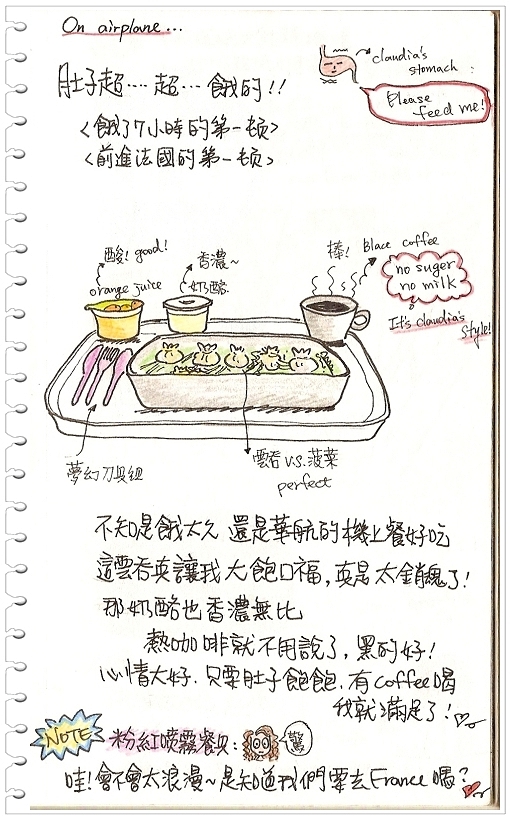 On airplane...
claudia's
stomach :
Please
feed me!
肚子超‧‧‧‧超‧‧‧餓的!!
<餓了7小時的第一頓>
<前進法國的第一頓>
酸! good!
orange juice
香濃~
奶酪
棒!
Black coffee
no suger
no milk
It's claudia's
style!
夢幻刀具組
雲吞 V.S. 菠菜
perfect
不知是餓太久 還是華航的機上餐好吃
這雲吞真讓我大飽口福, 真是太銷魂了!
那奶酪也香濃無比
熱咖啡就不用說了, 黑的好!
心情大好. 只要肚子飽飽. 有coffee喝
我就滿足了!
NOTE
粉紅噴霧餐具:
驚
哇! 會不會太浪漫~是知道我們要去France嗎?